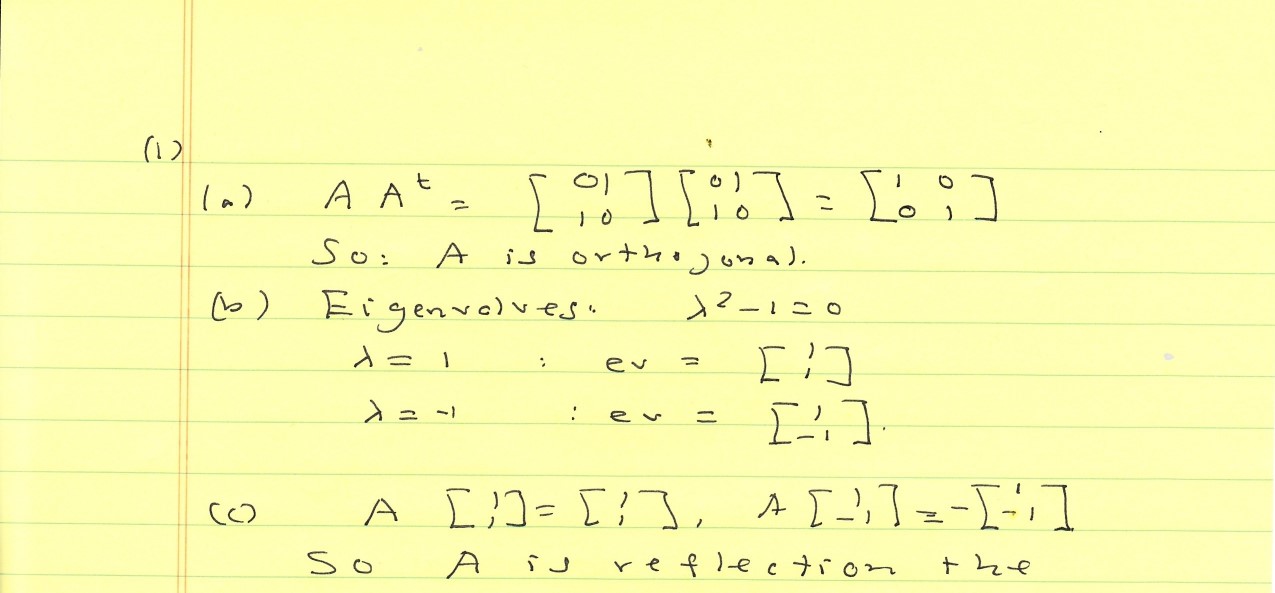 (1)
(a) A Aᵗ = [0 1; 1 0] [0 1; 1 0] = [1 0; 0 1]
So: A is orthogonal.
(b) Eigenvalues. λ² - 1 = 0
λ = 1 : ev = [1; 1]
λ = -1 : ev = [1; -1].
(c) A [1; 1] = [1; 1], A [1; -1] = -[1; -1]
So A is reflection the